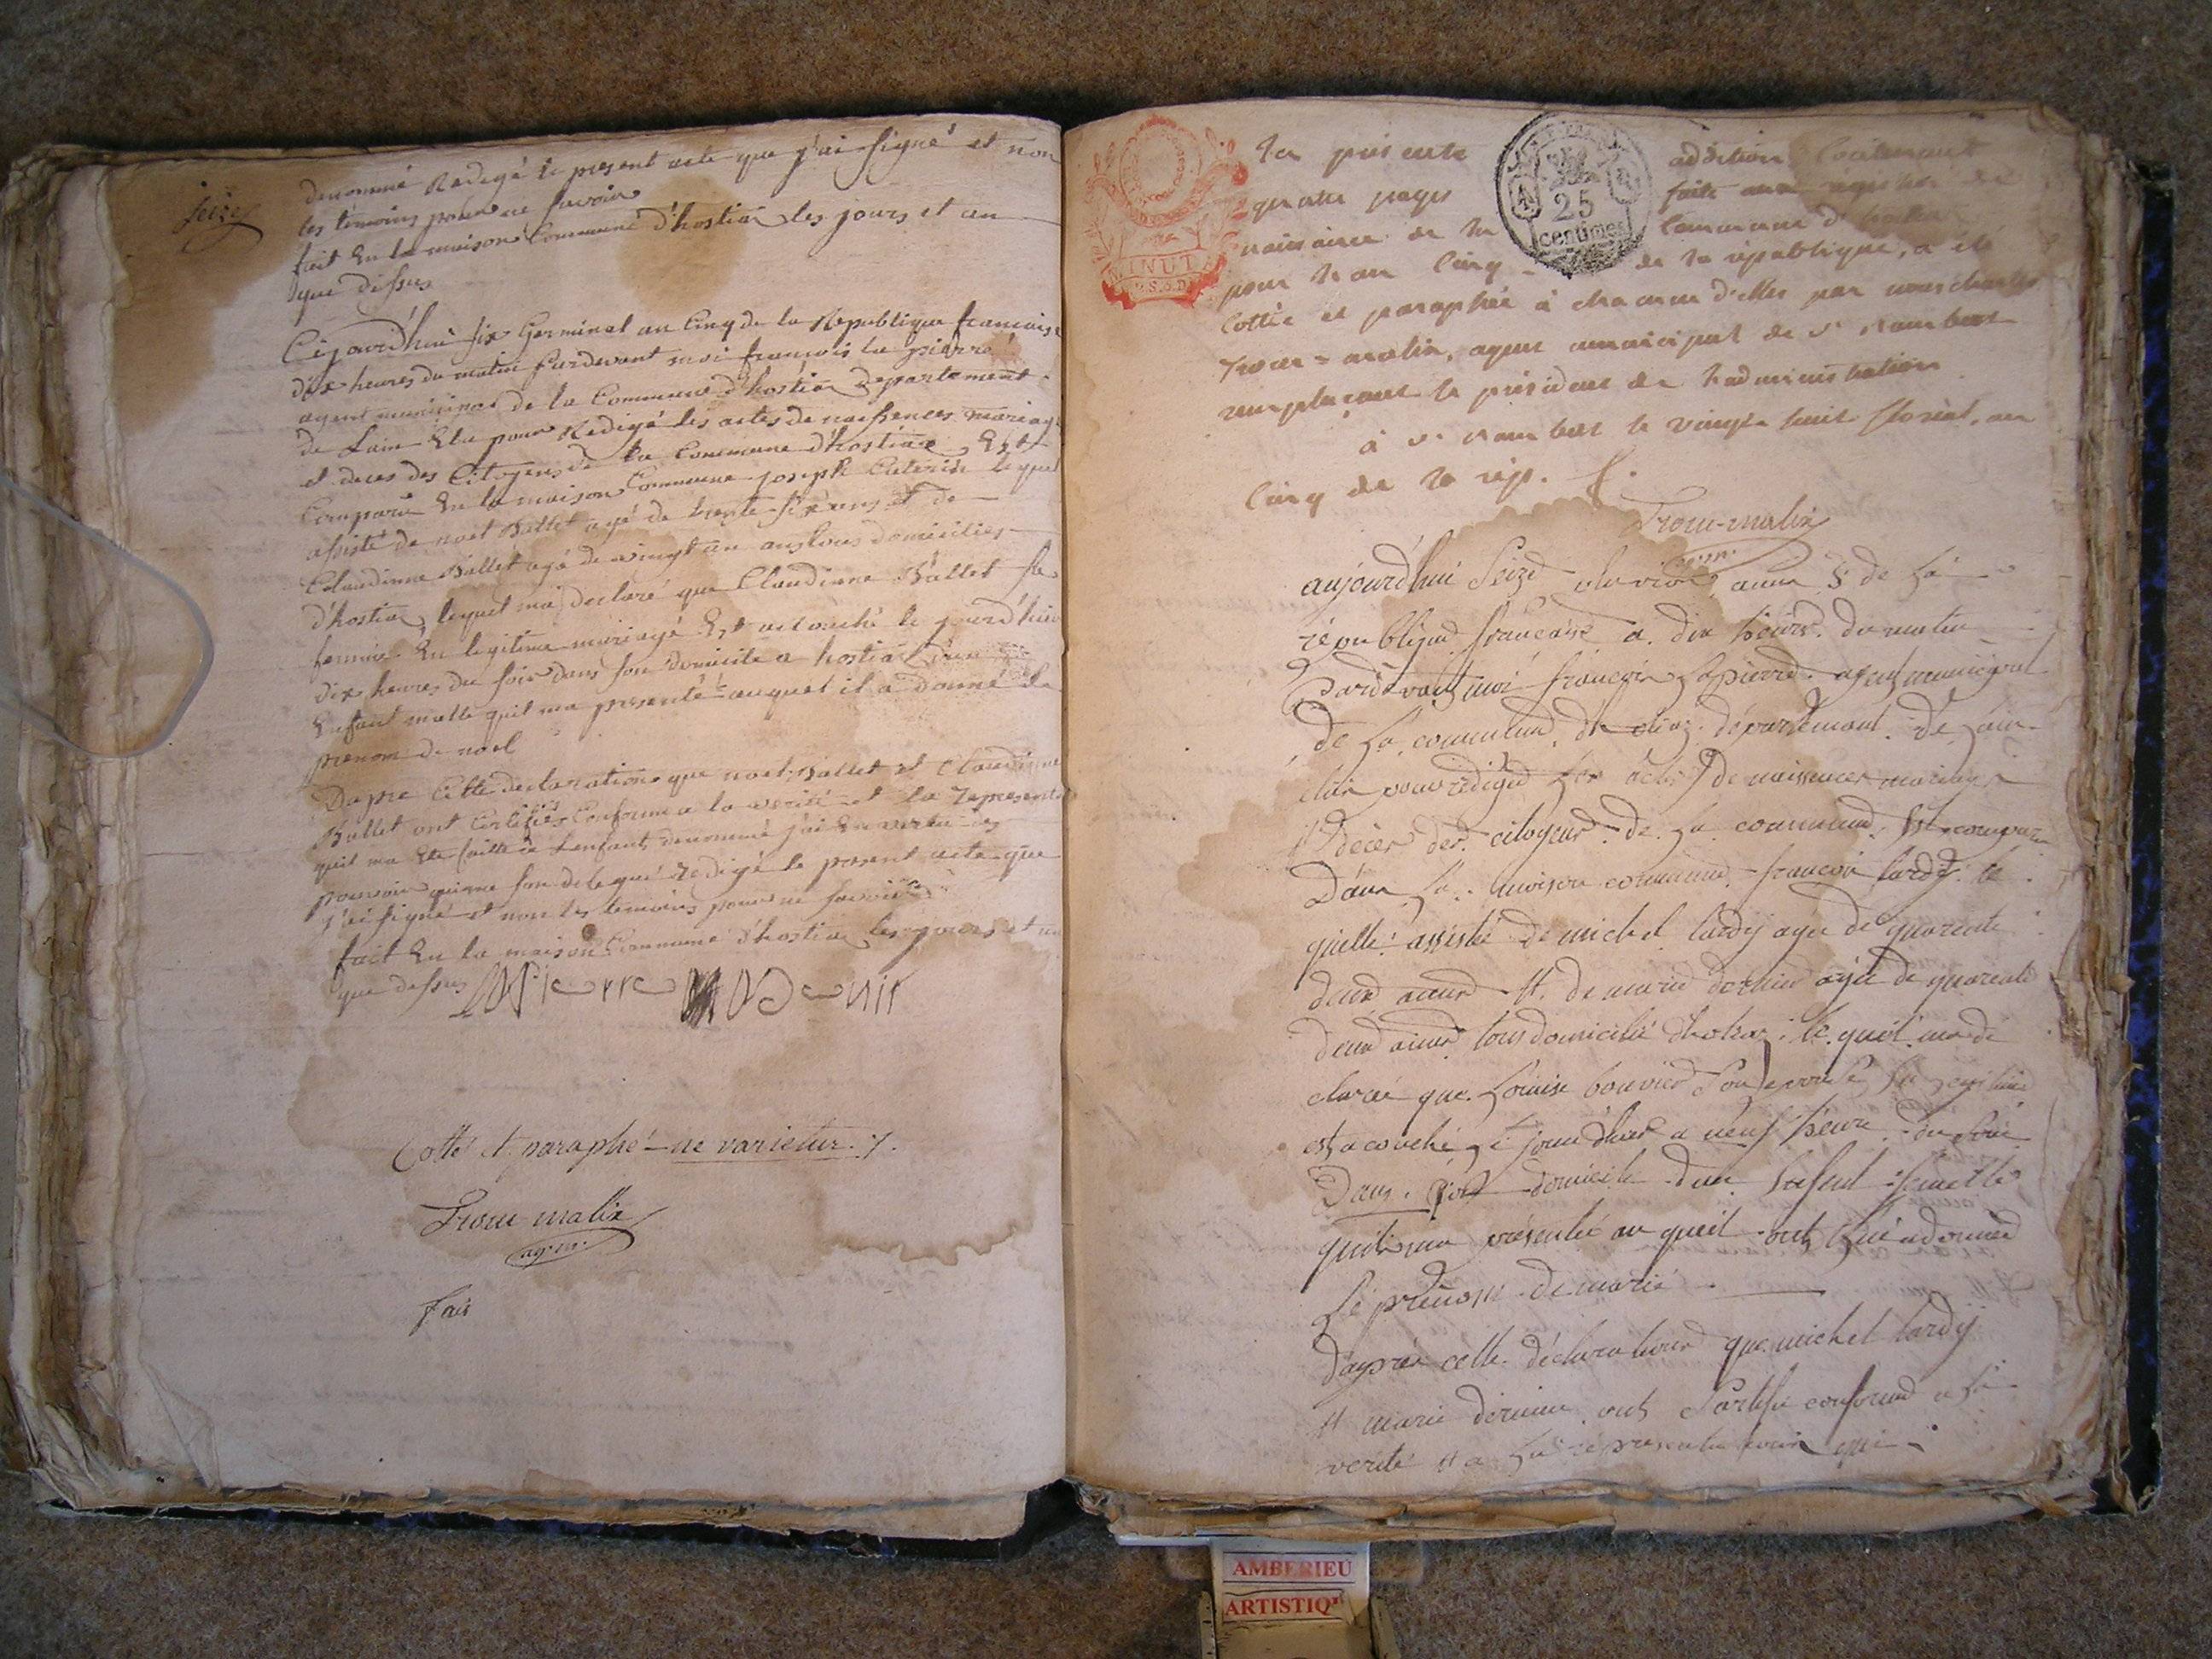 seize
denommé Redigé le present acte que j'ai signé et non
les témoins pour ne savoir
fait En la maison Commune d'hostiaz les jours et an
que dessus
Cejourd'hui six Germinal an Cinq de la Republique francaise
dix heures du matin pardevant moi françois la pierre
agent municipal de la Commune d'hostiaz departement
de Lain Elu pour Redigé les actes de naissences mariage
et deces des Citoyens de la Commune d'hostiaz Est
Comparu En la maison Commune joseph lequel
assisté de noel Ballet agé de trente six ans et de
Claudinne Ballet agé de vingt un ans tous domiciliés
d'hostiaz, lequel ma declaré que Claudinne Ballet sa
femme En legitime mariage Est acouché le jourd'hier
dix heures du soir dans son domicile a hostiaz d'un
Enfant malle quil ma presenté auquel il a donné le
prenom de noel
Dapre Cette declaration que noel Ballet et Claudinne
Ballet ont Certifiés Conforme a la verité et la represent
quil ma Eté faitte de Lenfant denommé j'ai En vertu des
pouvoir qui me son delegué redigé le present acte que
j'ai signé et non les temoins pour ne savoir
fait En la maison Commune d'hostiaz les jours et an
que dessus lapierre
Cotté et paraphé ne varietur
Trocu malix
ag. m.
fait
MINUTE
25
centimes
La presente addition Contenant
quatre pages faite aux registres de
naissance de la Commune d'hostiaz
pour l'an Cinq de la république, a été
Cottée et paraphée à chacune d'elles par nous charles
Trocu-malix, agent municipal de St Rambert
remplaçant le président de l'administration
à St Rambert le vingt huit floréal, an
Cinq de la rép.
Trocu-malix
aujourd'hui Seize anne 5 de La
république francaise a dix heures du matin
Pardevant moi francois Lapierre agent municipal
De La commune dhostiaz département De Lain
elue pour rédigée Les actes De naissences mariages
et décés des citoyens De La commune, Est comparu
Dans La maison commune francois tardy le
quelle assisté De michel tardy agée De quarente
deux annes et De marie dernier agée de quarente
deux annes tous domicilié dhostiaz le quel ma dé
claréé que Louise bouvier Son epouse La legitime
est acouché Le jourd'hier a neuf heure du soir
Dans Son domicile dun Enfent femelle
quil ma présenté au quel ont Lui a donnée
Le prénom De marie
Daprés cette déclaration que michel tardy
et marie dernier ont Sertifié conforme a La
verité et a La representation qui
AMBERIEU
ARTISTIQ